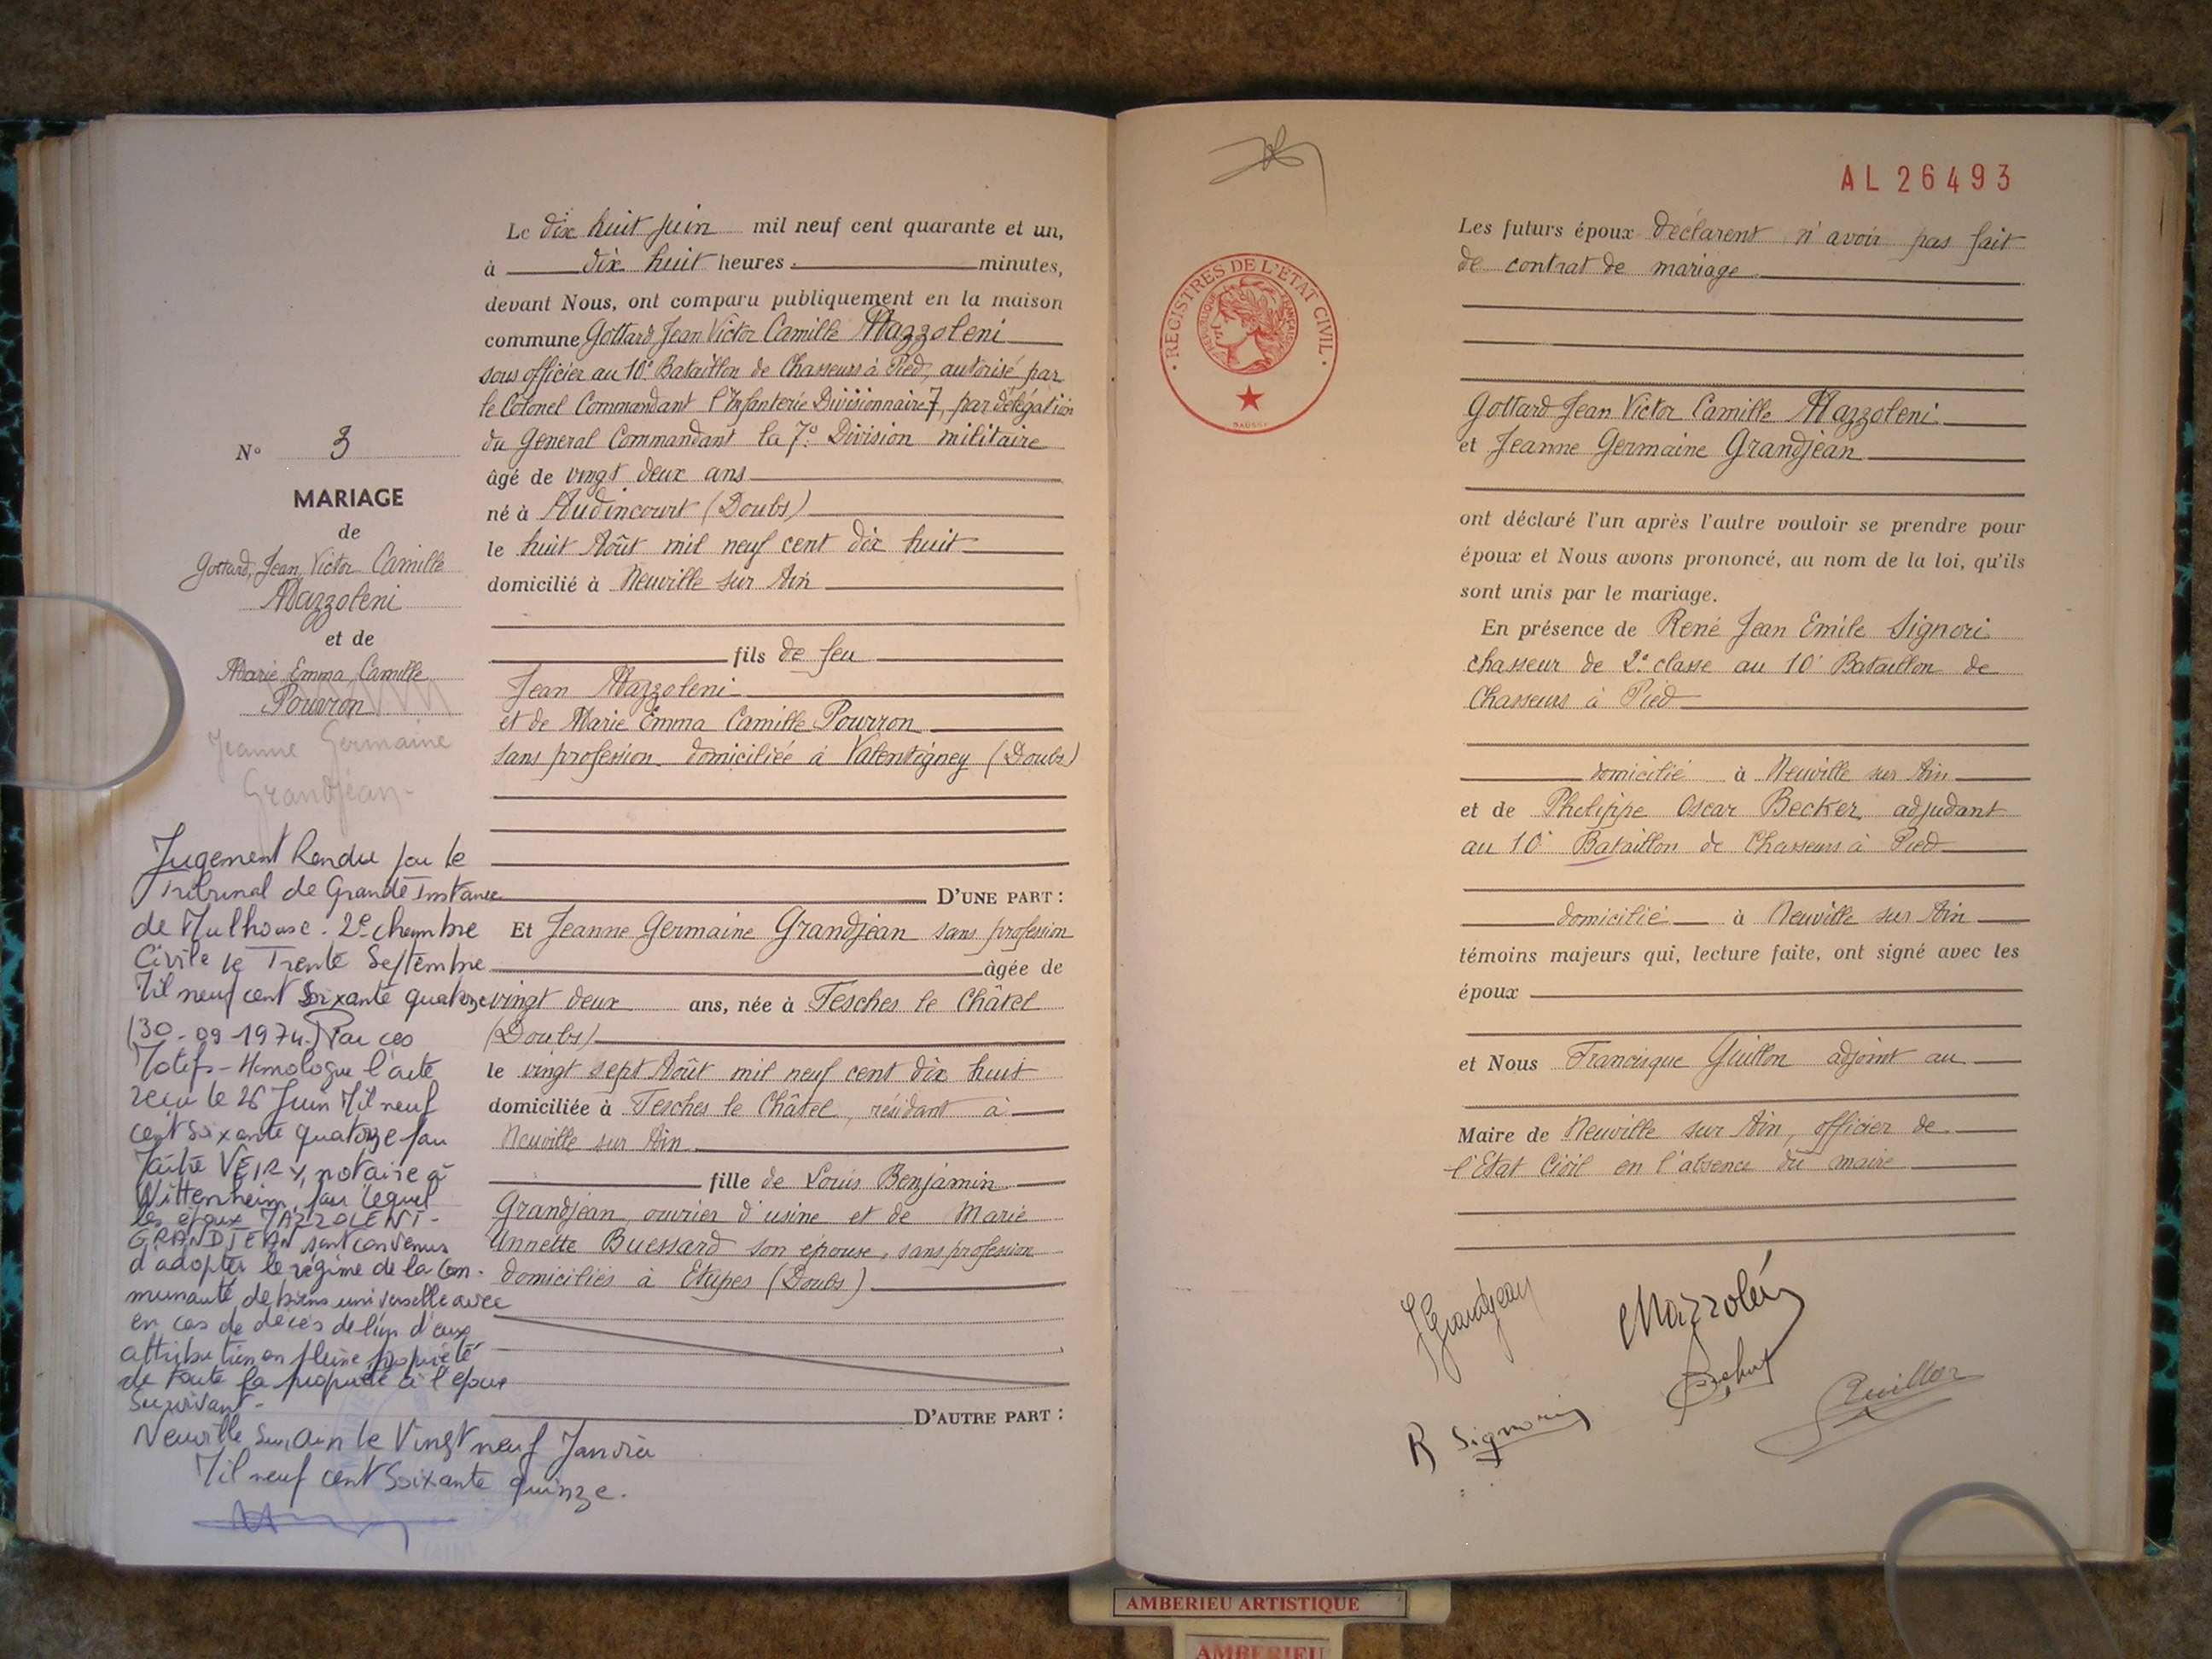 N° 3
MARIAGE
de
Gottard, Jean, Victor Camille
Mazzoleni
et de
Marie, Emma, Camille
Pourron
Jeanne Germaine
Grandjean
Jugement Rendu par le
Tribunal de Grande Instance
de Mulhouse. 2e chambre
Civile le Trente Septembre
Mil neuf cent Soixante quatorze
(30-09-1974.) Par ces
Motifs - Homologue l'acte
reçu le 26 Juin Mil neuf
cent soixante quatorze par
Maître VEIRY, notaire à
Wittenheim, par lequel
les époux MAZZOLENI-
GRANDJEAN sont convenus
d'adopter le régime de la com-
munauté de biens universelle avec
en cas de décès de l'un d'eux
attribution en pleine propriété
de toute la propriété à l'époux
survivant-
Neuville sur Ain le Vingt neuf Janvier
Mil neuf cent Soixante quinze.
Le dix huit Juin mil neuf cent quarante et un,
à dix huit heures minutes,
devant Nous, ont comparu publiquement en la maison
commune Gottard Jean Victor Camille Mazzoleni
sous officier au 10e Bataillon de Chasseurs à Pied, autorisé par
le Colonel Commandant l'Infanterie Divisionnaire 7, par délégation
du General Commandant la 7e Division militaire
âgé de vingt deux ans
né à Audincourt (Doubs)
le huit Août mil neuf cent dix huit
domicilié à Neuville sur Ain
fils de feu
Jean Mazzoleni
et de Marie Emma Camille Pourron
sans profession domiciliée à Valentigney (Doubs)
D'UNE PART :
Et Jeanne Germaine Grandjean sans profession
âgée de
vingt deux ans, née à Fesches le Châtel
(Doubs)
le vingt sept Août mil neuf cent dix huit
domiciliée à Fesches le Châtel, résidant à
Neuville sur Ain
fille de Louis Benjamin
Grandjean, ouvrier d'usine et de Marie
Annette Buessard son épouse, sans profession
domiciliés à Etupes (Doubs)
D'AUTRE PART :
AL 26493
REGISTRES DE L'ETAT CIVIL
REPUBLIQUE FRANÇAISE
Les futurs époux déclarent n'avoir pas fait
de contrat de mariage
Gottard Jean Victor Camille Mazzoleni
et Jeanne Germaine Grandjean
ont déclaré l'un après l'autre vouloir se prendre pour
époux et Nous avons prononcé, au nom de la loi, qu'ils
sont unis par le mariage.
En présence de René Jean Emile Signori
chasseur de 2e classe au 10e Bataillon de
Chasseurs à Pied
domicilié à Neuville sur Ain
et de Philippe Oscar Becker, adjudant
au 10e Bataillon de Chasseurs à Pied
domicilié à Neuville sur Ain
témoins majeurs qui, lecture faite, ont signé avec les
époux
et Nous Francisque Guillon adjoint au
Maire de Neuville sur Ain, officier de
l'Etat Civil en l'absence du maire
J Grandjean
Mazzoleni
R Signori
Guillon
AMBERIEU ARTISTIQUE
AMBERIEU